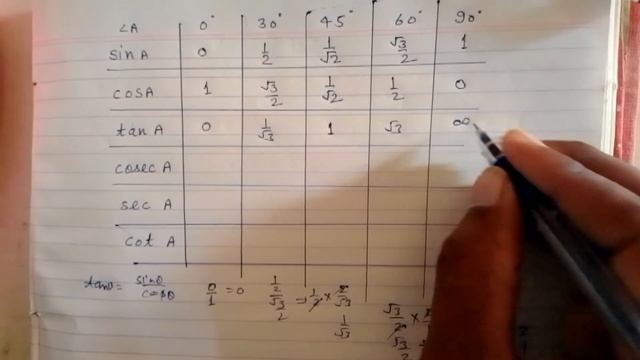 ∠A 0° 30° 45° 60° 90°
sin A 0 1/2 1/√2 √3/2 1
cos A 1 √3/2 1/√2 1/2 0
tan A 0 1/√3 1 √3 ∞
cosec A
sec A
cot A
tanθ = sinθ/cosθ 0/1 = 0 1/2/√3/2 = 1/2 × 2/√3
1/√3
√3/2 ×
√3/2